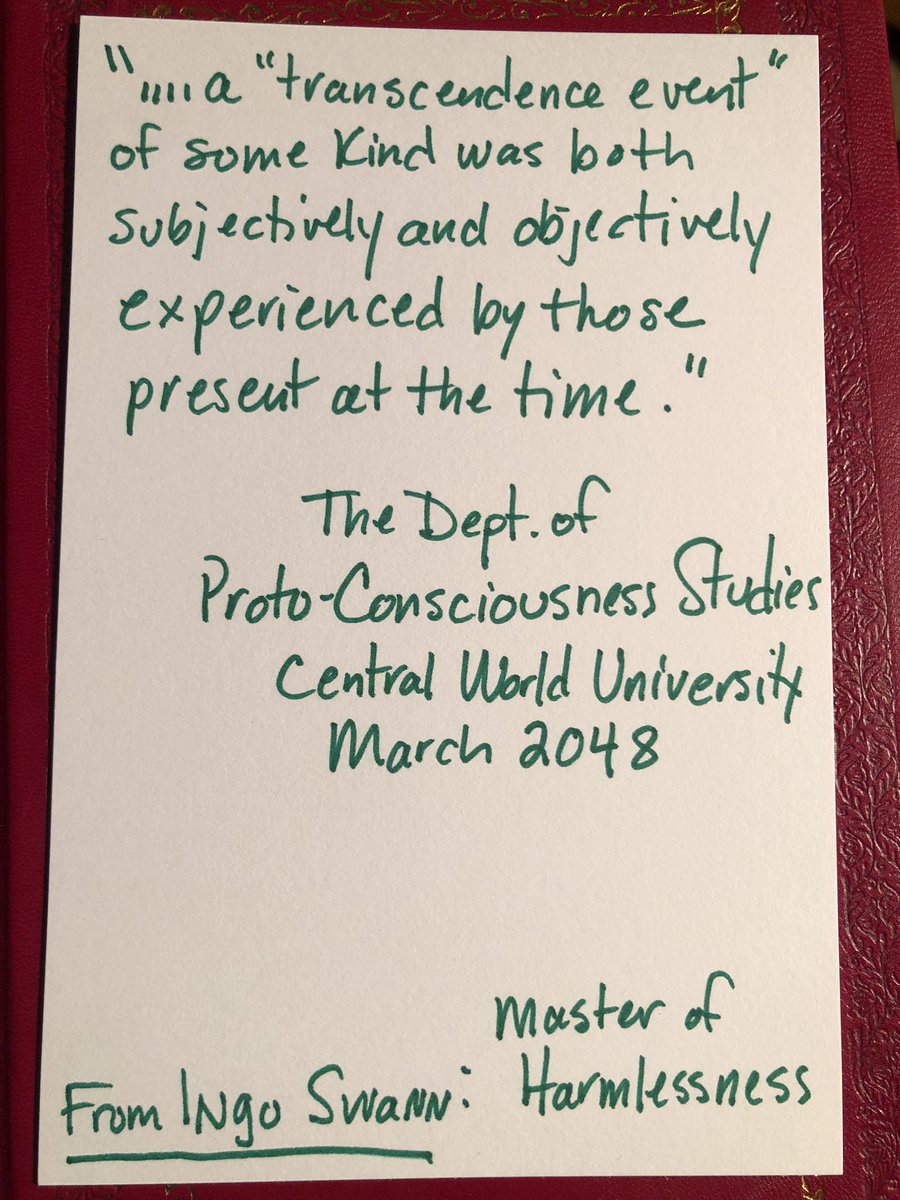 "....a "transcendence event"
of some Kind was both
subjectively and objectively
experienced by those
present at the time."
The Dept. of
Proto-Consciousness Studies
Central World University
March 2048
Master of
From Ingo Swann: Harmlessness